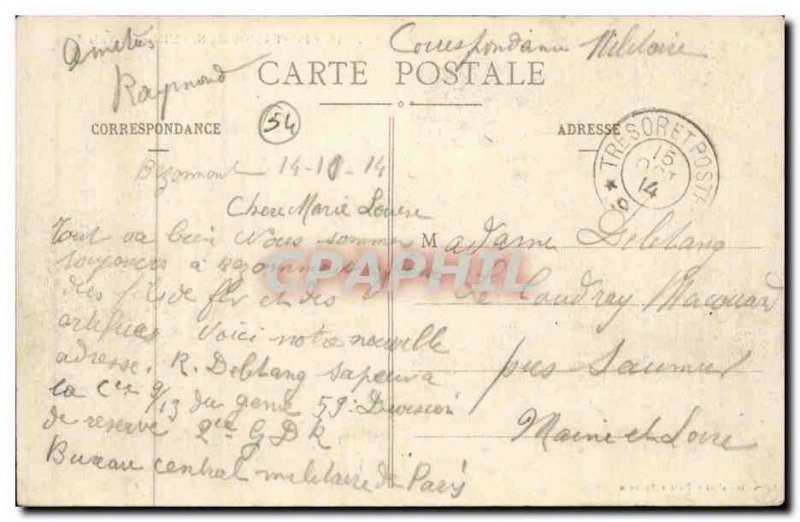 Amitiés
Raymond
Correspondance Militaire
CARTE POSTALE
54
CORRESPONDANCE
ADRESSE
TRESOR ET POSTE
15
OCT
14
Bezonmont 14-10-14
Chere Marie Louise
Tout va bien Nous sommes
toujours à
des fils de fer et des
Voici notre nouvelle
adresse. R. Deletang sapeur a
la Cie 9/13 du genie 59e Division
de reserve 2me G D R
Bureau central militaire de Paris
Madame Deletang
Le Coudray Macouard
pres Saumur
Maine et Loire
CPAPHIL